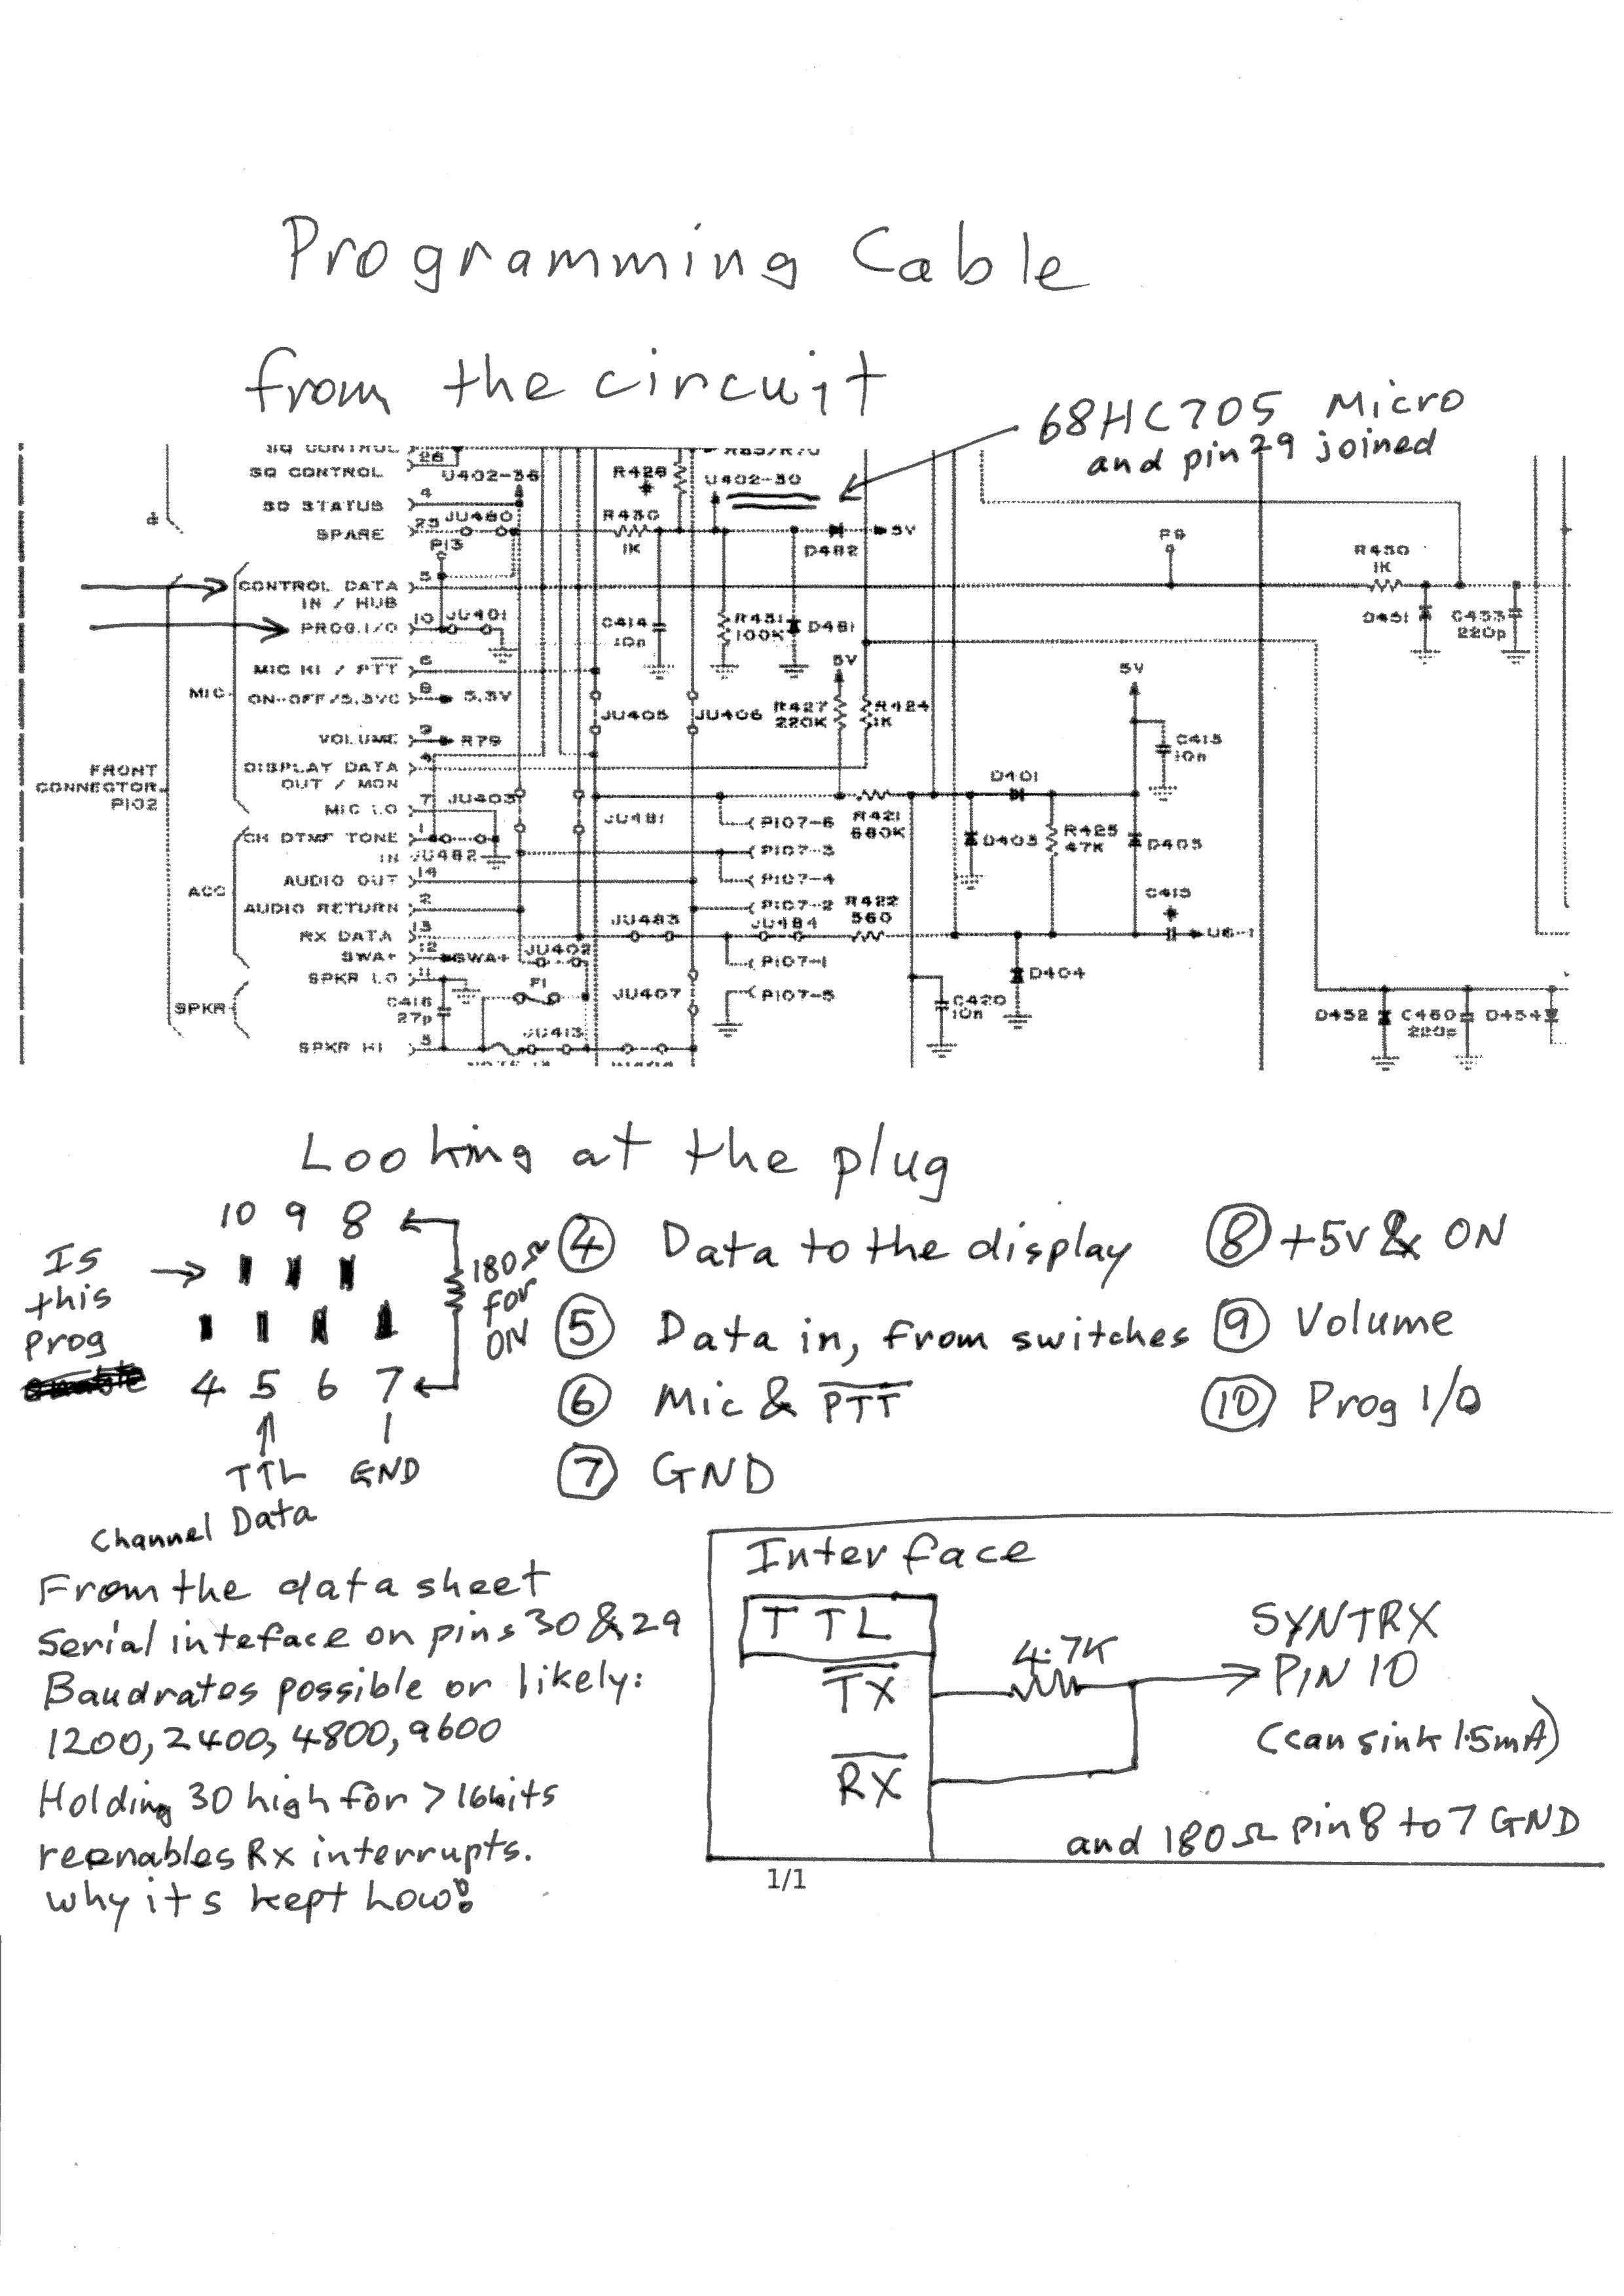 Programming Cable
from the circuit
68HC705 Micro
and pin 29 joined
SQ CONTROL
26
SQ CONTROL
U402-36
R428
U402-30
4
SQ STATUS
25
JU480
SPARE
P13
R430
1K
D482
5V
P9
R450
1K
5
CONTROL DATA
IN / HUB
10
JU401
PROG.I/O
C414
10n
R431
100K
D481
D451
C453
220p
6
MIC HI / PTT
MIC
8
ON-OFF/5.3VC
5.3V
JU405
JU406
R427
220K
5V
R424
1K
5V
9
VOLUME
R79
C413
10n
4
DISPLAY DATA
OUT / MON
FRONT
CONNECTOR
P102
D401
7
MIC LO
JU403
JU481
P107-6
R421
680K
1
CH DTMF TONE
IN
JU482
P107-3
D403
R425
47K
D405
14
AUDIO OUT
P107-4
ACC
2
AUDIO RETURN
P107-2
R422
560
C415
13
RX DATA
JU483
JU484
U6-1
12
SWA+
SWA+
JU402
P107-1
11
SPKR LO
F1
JU407
P107-5
D404
SPKR
C416
27p
C420
10n
D452
C460
220p
D454
3
SPKR HI
JU413
Looking at the plug
10 9 8
Is
this
Prog
180Ω
for
ON
4 5 6 7
TTL GND
Channel Data
④ Data to the display
⑤ Data in, from switches
⑥ Mic & P̅T̅T̅
⑦ GND
⑧ +5v & ON
⑨ Volume
⑩ Prog I/O
From the data sheet
Serial inteface on pins 30 & 29
Baudrates possible or likely:
1200, 2400, 4800, 9600
Holding 30 high for > 16bits
reenables Rx interrupts.
why it's kept Low!
Interface
TTL
T̅X̅
4.7K
SYNTRX
PIN 10
(can sink 1.5mA)
R̅X̅
and 180Ω pin 8 to 7 GND
1/1